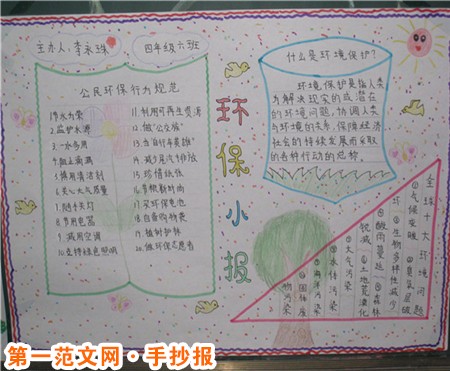 主办人：李永珠
四年级六班
公民环保行为规范
1节水为荣
2.监护水源
3.一水多用
4.阻止滴漏
5.慎用清洁剂
6.关心大气质量
7.随手关灯
8.节用电器
9.减用空调
10.支持绿色照明
11.利用可再生资源
12.做"公交族"
13.当"自行车英雄"
14.减少尾气排放
15.珍惜纸张
17.买环保电池
18.自备购物袋
19.植树护林
20.做环保志愿者
环保小报
什么是环境保护？
环境保护是指人类
为解决现实的或潜在
的环境问题，协调人类
与环境的关系，保障经济
社会的持续发展而采取
的各种行动的总称。
全球十大环境问题
①气候变暖
②臭氧层破
坏
③生物多样性减少
④酸雨蔓延
⑤森林
锐减
⑥土地荒漠化
⑦大气污染
⑧水体污染
⑨海洋污染
⑩固体废
物污染
第一范文网·手抄报